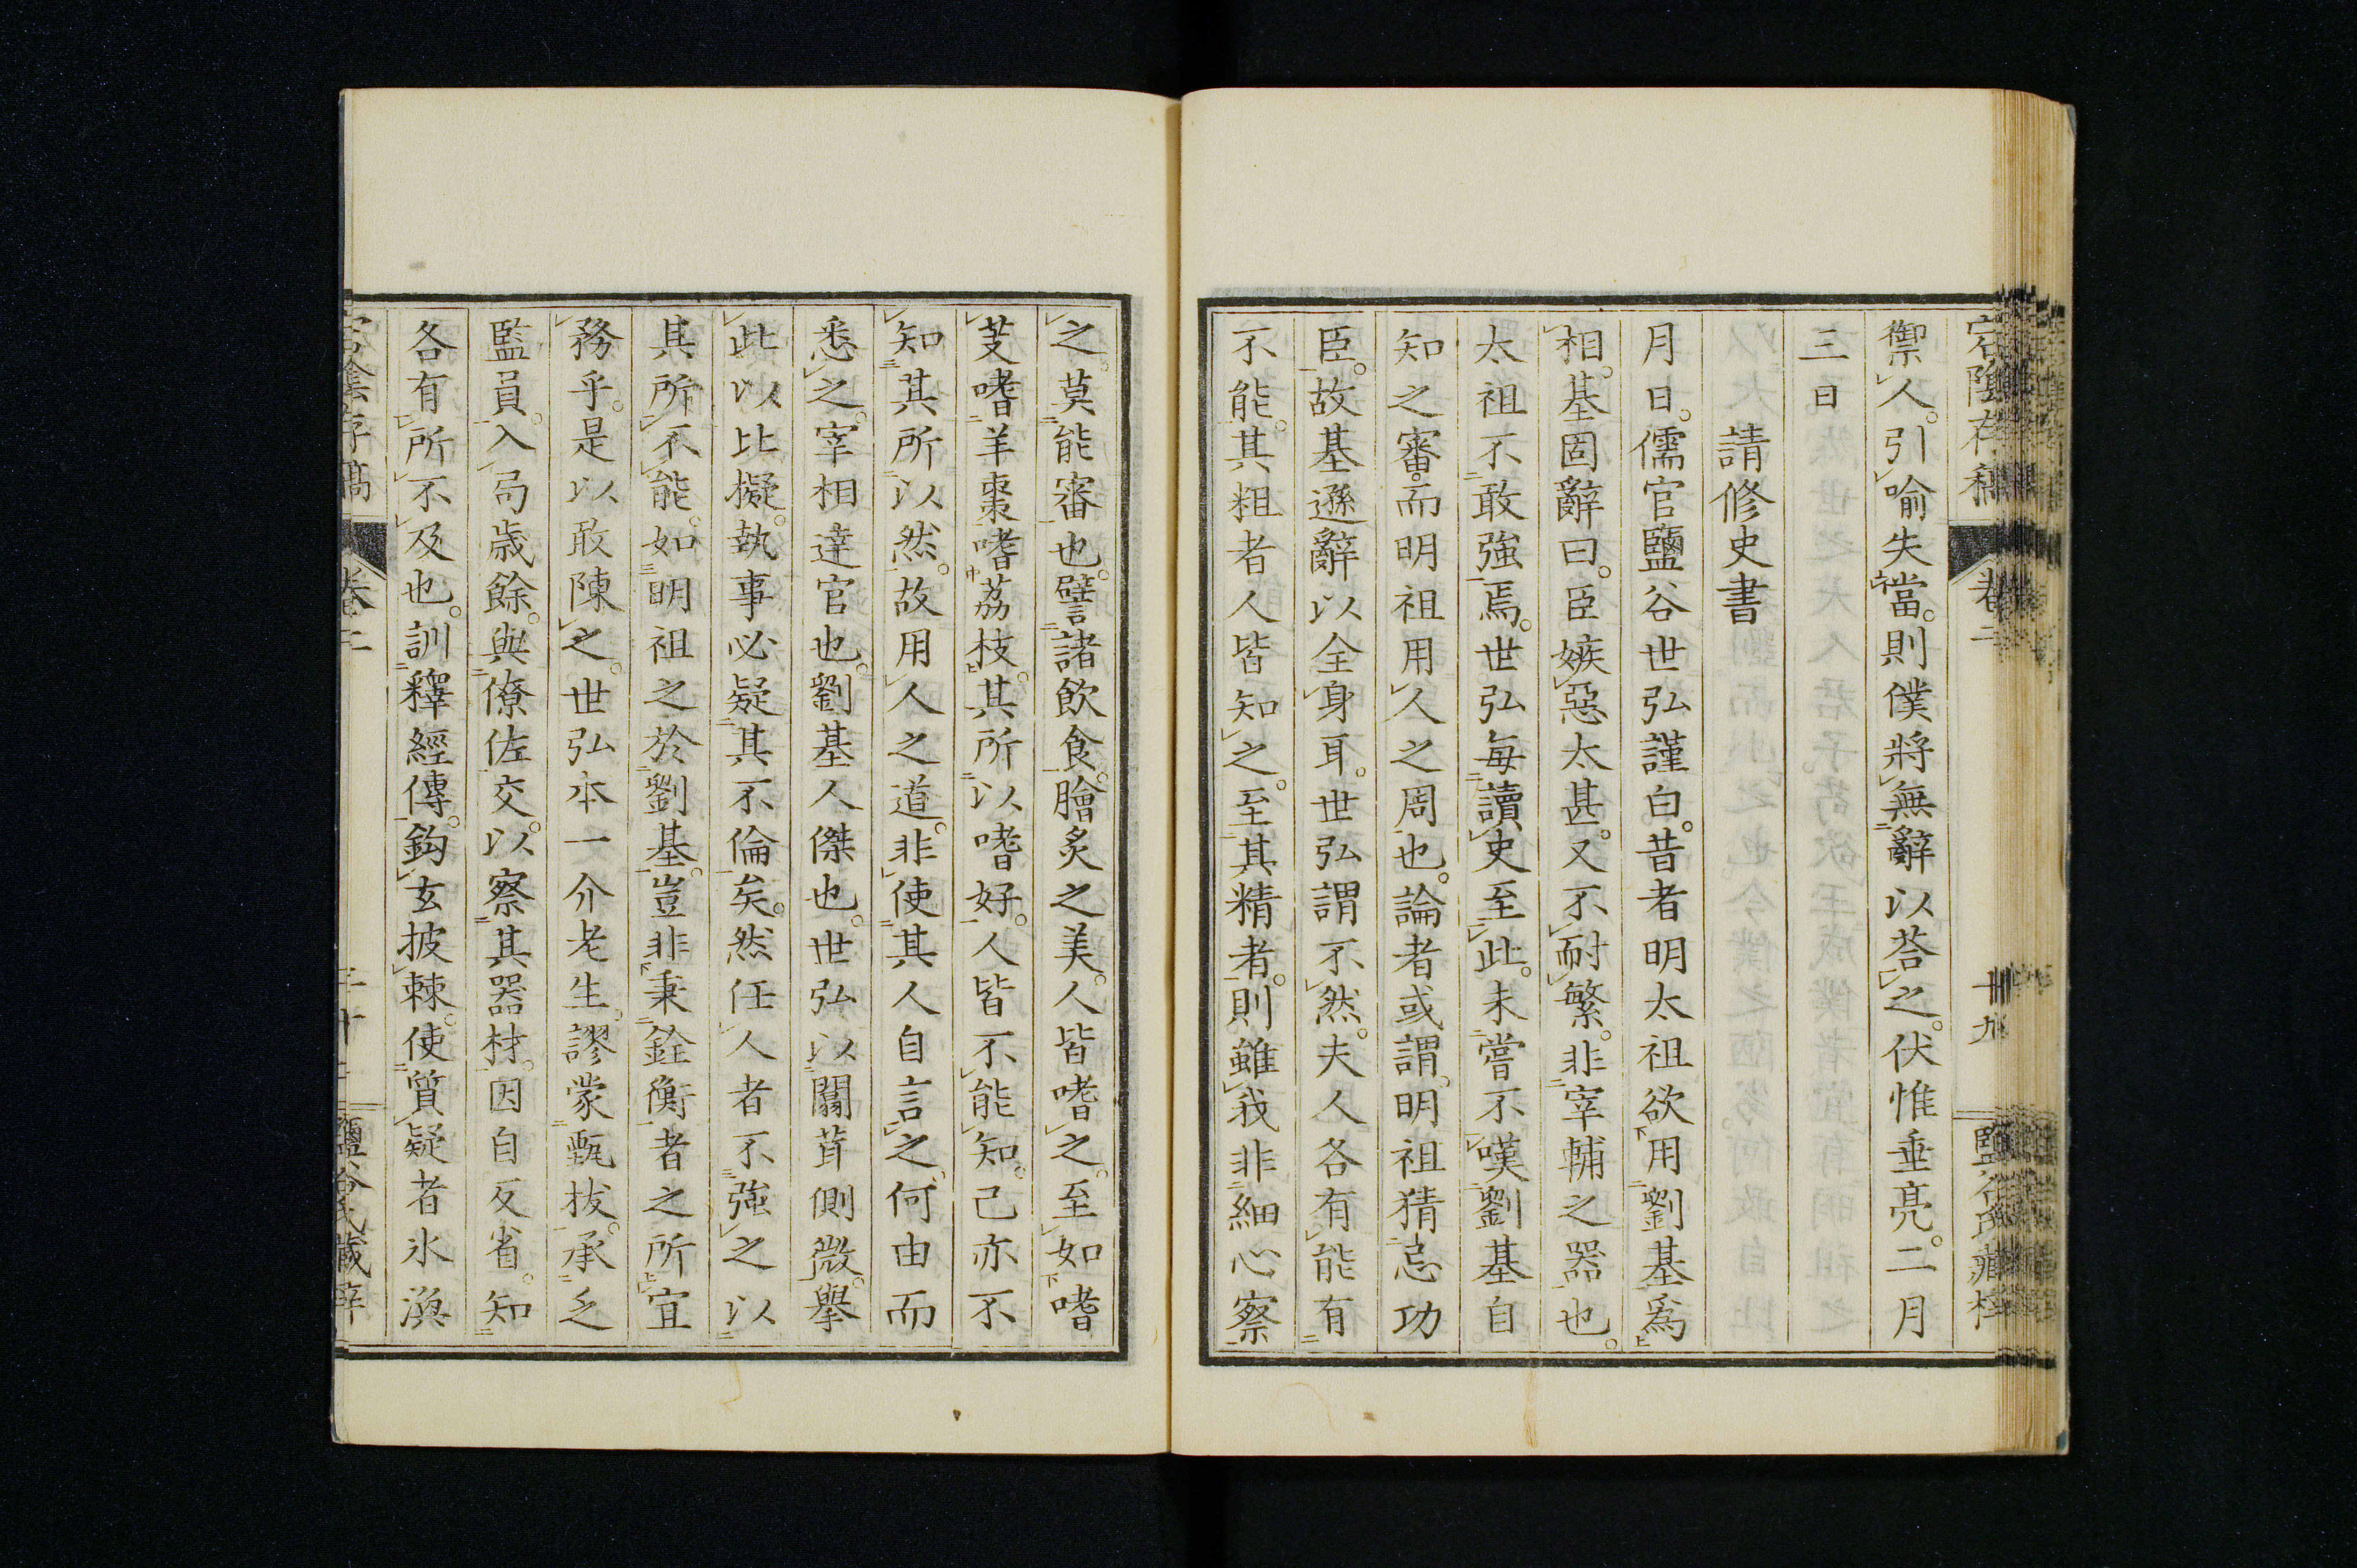 禦人。引喻失當。則僕將無辭以荅之。伏惟垂亮。二月
三日
請修史書
月日。儒官鹽谷世弘謹白。昔者明太祖欲用劉基爲
相。基固辭曰。臣嫉惡太甚。又不耐繁。非宰輔之器也。
太祖不敢強焉。世弘每讀史至此。未嘗不嘆劉基自
知之審。而明祖用人之周也。論者或謂。明祖猜忌功
臣。故基遜辭以全身耳。世弘謂不然。夫人各有能有
不能。其粗者人皆知之。至其精者。則雖我非細心察
之。莫能審也。譬諸飲食。膾炙之美。人皆嗜之。至如嗜
芰嗜羊棗嗜茘枝。其所以嗜好。人皆不能知。己亦不
知其所以然。故用人之道。非使其人自言之。何由而
悉之。宰相達官也。劉基人傑也。世弘以闒茸側微。擧
此以比擬。執事必疑其不倫矣。然任人者不強之以
其所不能。如明祖之於劉基。豈非秉銓衡者之所宜
務乎。是以敢陳之。世弘本一介老生。謬蒙甄拔。承乏
監員。入局歲餘。與僚佐交。以察其器材。因自反省。知
各有所不及也。訓釋經傳。鈎玄披棘。使質疑者氷渙